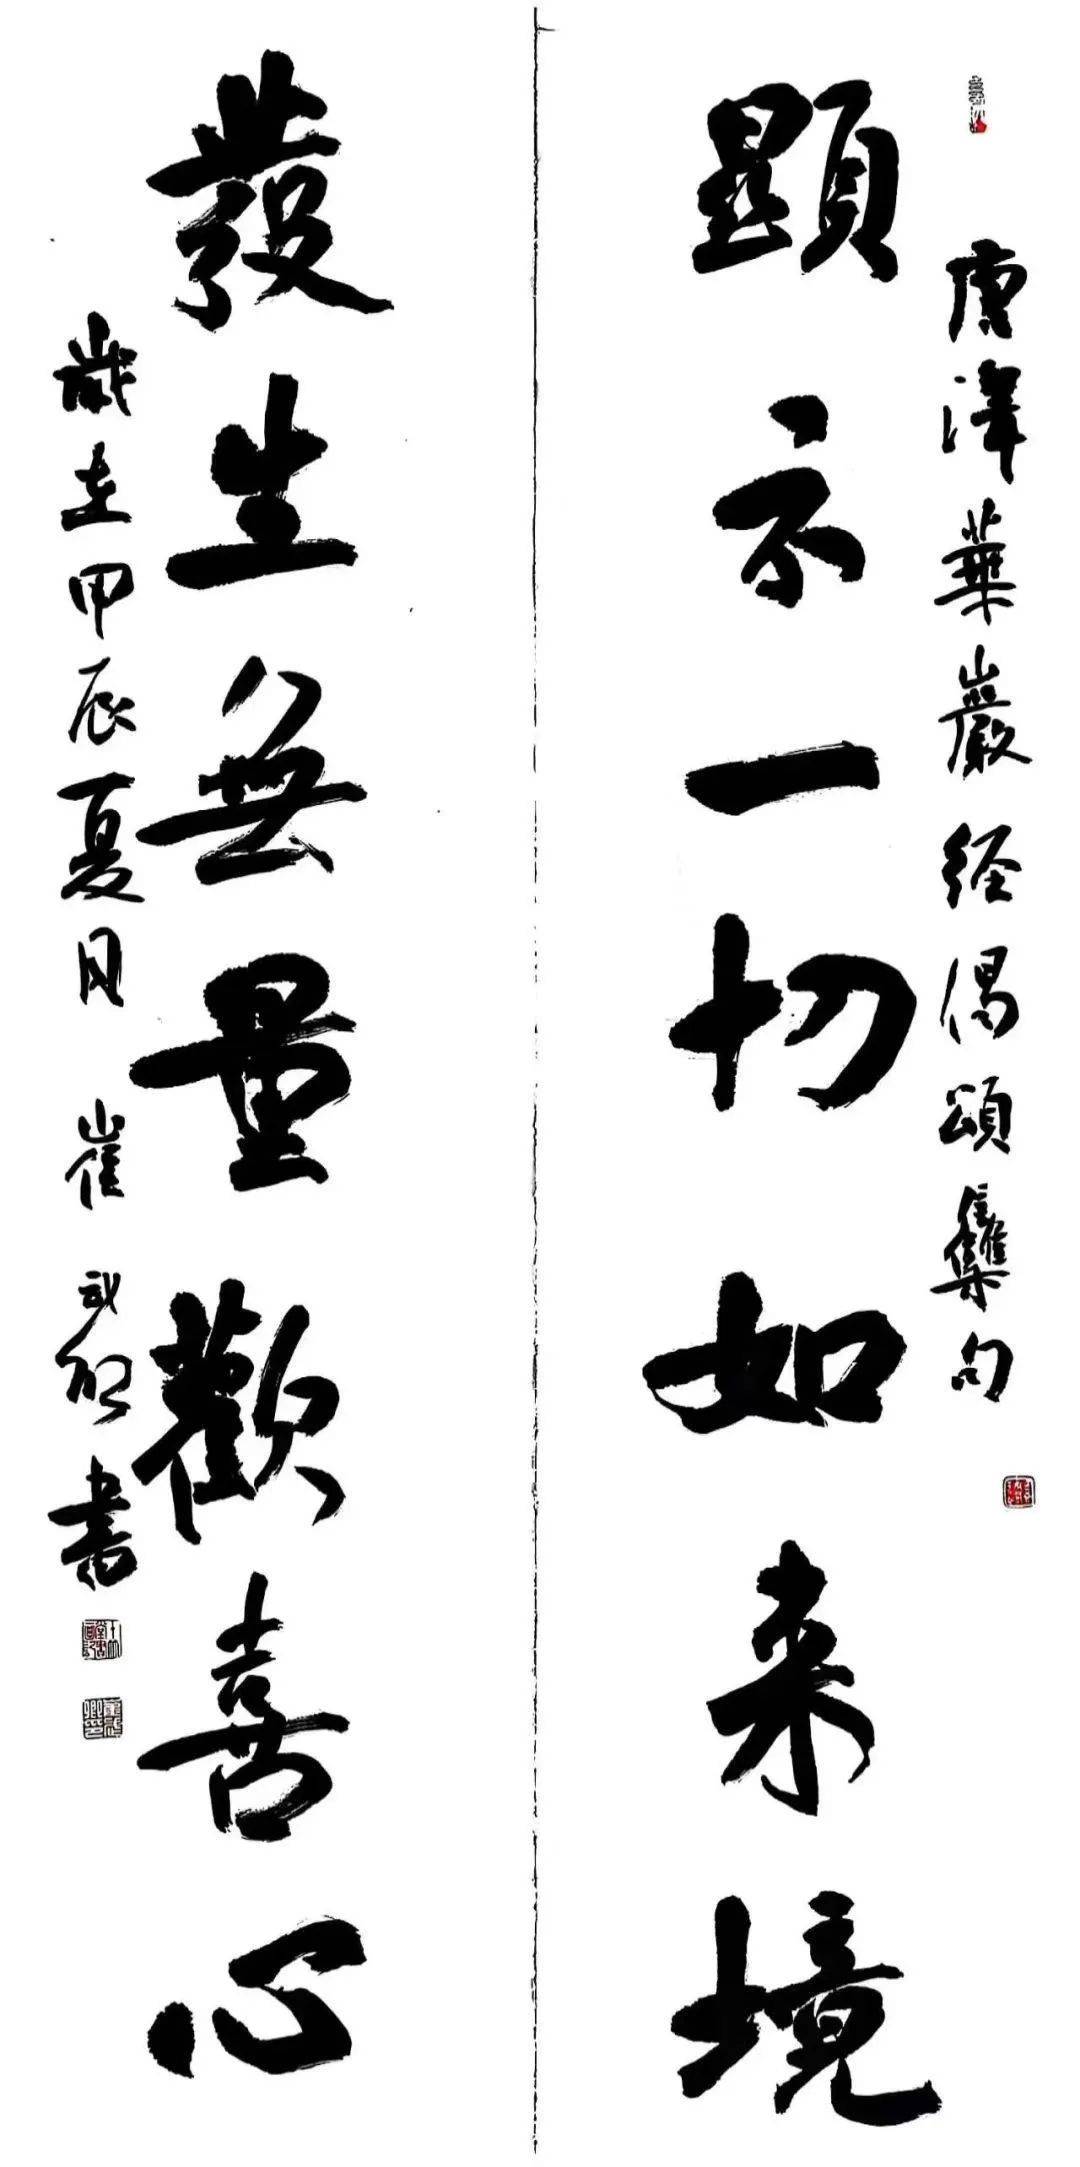 唐譯華嚴经偈頌雧句
顯示一切如来境
發生無量歡喜心
歲在甲辰夏月 崔武書